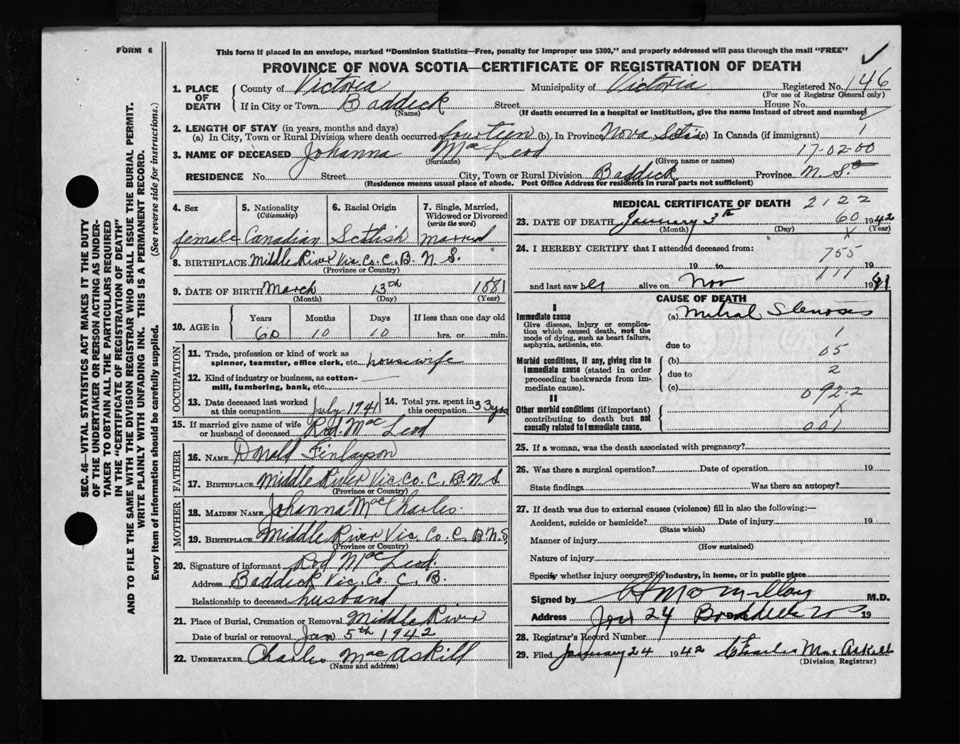 FORM 6
This form if placed in an envelope, marked "Dominion Statistics—Free, penalty for improper use $300," and properly addressed will pass through the mail "FREE"
PROVINCE OF NOVA SCOTIA—CERTIFICATE OF REGISTRATION OF DEATH
1. PLACE OF DEATH
County of Victoria Municipality of Victoria Registered No. 146
(For use of Registrar General only)
If in City or Town Baddeck Street House No.
(Name) (If death occurred in a hospital or institution, give the name instead of street and number)
2. LENGTH OF STAY (in years, months and days)
(a) In City, Town or Rural Division where death occurred fourteen (b). In Province Nova Scotia (c) In Canada (if immigrant) 1
3. NAME OF DECEASED Johanna MacLeod 17-02-00
(Surname) (Given name or names)
RESIDENCE No. Street City, Town or Rural Division Baddeck Province N. S.
(Residence means usual place of abode. Post Office Address for residents in rural parts not sufficient)
4. Sex 5. Nationality (Citizenship) 6. Racial Origin 7. Single, Married, Widowed or Divorced (write the word)
female Canadian Scottish married
8. BIRTHPLACE Middle River Vic. Co. C. B. N. S.
(Province or Country)
9. DATE OF BIRTH March 13th 1881
(Month) (Day) (Year)
10. AGE in Years Months Days If less than one day old
60 10 10 hrs. or min.
OCCUPATION
11. Trade, profession or kind of work as spinner, teamster, office clerk, etc. housewife
12. Kind of industry or business, as cotton-mill, lumbering, bank, etc. —
13. Date deceased last worked at this occupation July 1941 14. Total yrs. spent in this occupation 33 yrs
15. If married give name of wife or husband of deceased Rod. MacLeod
FATHER
16. NAME Donald Finlayson
17. BIRTHPLACE Middle River Vic Co. C. B. N. S.
(Province or Country)
MOTHER
18. MAIDEN NAME Johanna MacCharles
19. BIRTHPLACE Middle River Vic. Co. C. B. N. S.
(Province or Country)
20. Signature of informant Rod MacLeod.
Address Baddeck Vic. Co. C. B.
Relationship to deceased husband
21. Place of Burial, Cremation or Removal Middle River
Date of burial or removal Jan 5th 1942
22. UNDERTAKER Charles MacAskill
(Name and address)
MEDICAL CERTIFICATE OF DEATH 2122
23. DATE OF DEATH January 3rd 60 1942
(Month) (Day) (Year)
24. I HEREBY CERTIFY that I attended deceased from:
755
19 to 19
and last saw her alive on Nov 1941
CAUSE OF DEATH
I
Immediate cause
Give disease, injury or complication which caused death, not the mode of dying, such as heart failure, asphyxia, asthenia, etc.
(a) Mitral Stenosis
due to 1
05
Morbid conditions, if any, giving rise to immediate cause (stated in order proceeding backwards from immediate cause).
(b)
due to 2
(c) 092-2
II
Other morbid conditions (if important) contributing to death but not causally related to immediate cause.
X
001
25. If a woman, was the death associated with pregnancy?
26. Was there a surgical operation? Date of operation 19
State findings Was there an autopsy?
27. If death was due to external causes (violence) fill in also the following:—
Accident, suicide or homicide? Date of injury 19
(State which)
Manner of injury
(How sustained)
Nature of injury
Specify whether injury occurred in industry, in home, or in public place
Signed by M.D.
Address Jan 24 Baddeck 19
28. Registrar's Record Number
29. Filed January 24 1942 Charles MacAskill
(Division Registrar)
SEC. 46—VITAL STATISTICS ACT MAKES IT THE DUTY
OF THE UNDERTAKER OR PERSON ACTING AS UNDERTAKER TO OBTAIN ALL THE PARTICULARS REQUIRED
IN THE "CERTIFICATE OF REGISTRATION OF DEATH"
AND TO FILE THE SAME WITH THE DIVISION REGISTRAR WHO SHALL ISSUE THE BURIAL PERMIT.
WRITE PLAINLY WITH UNFADING INK. THIS IS A PERMANENT RECORD.
Every item of information should be carefully supplied. (See reverse side for instructions.)